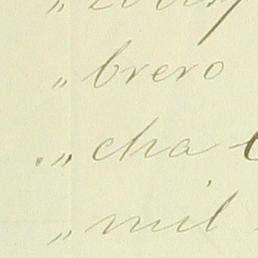 „ brero
„ cha
„ mil